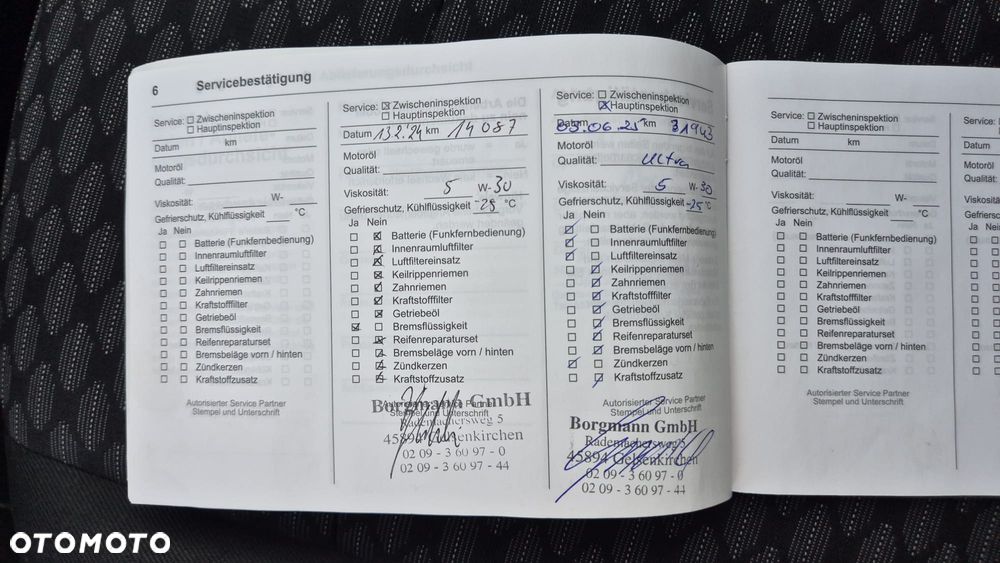 6 Servicebestätigung
Service: ☐ Zwischeninspektion
☐ Hauptinspektion
Datum km
Motoröl
Qualität:
Viskosität: W-
Gefrierschutz, Kühlflüssigkeit °C
Ja Nein
☐ ☐ Batterie (Funkfernbedienung)
☐ ☐ Innenraumluftfilter
☐ ☐ Luftfiltereinsatz
☐ ☐ Keilrippenriemen
☐ ☐ Zahnriemen
☐ ☐ Kraftstofffilter
☐ ☐ Getriebeöl
☐ ☐ Bremsflüssigkeit
☐ ☐ Reifenreparaturset
☐ ☐ Bremsbeläge vorn / hinten
☐ ☐ Zündkerzen
☐ ☐ Kraftstoffzusatz
Autorisierter Service Partner
Stempel und Unterschrift
Service: ☒ Zwischeninspektion
☐ Hauptinspektion
Datum 13.2.24 km 14 087
Motoröl
Qualität:
Viskosität: 5 W-30
Gefrierschutz, Kühlflüssigkeit -25 °C
Ja Nein
☐ ☒ Batterie (Funkfernbedienung)
☐ ☒ Innenraumluftfilter
☐ ☒ Luftfiltereinsatz
☐ ☒ Keilrippenriemen
☐ ☒ Zahnriemen
☐ ☒ Kraftstofffilter
☐ ☒ Getriebeöl
☒ ☐ Bremsflüssigkeit
☐ ☒ Reifenreparaturset
☐ ☒ Bremsbeläge vorn / hinten
☐ ☒ Zündkerzen
☐ ☒ Kraftstoffzusatz
Autorisierter Service Partner
Borgmann GmbH
Stempel und Unterschrift
Rademachersweg 5
45894 Gelsenkirchen
02 09 - 3 60 97 - 0
02 09 - 3 60 97 - 44
Service: ☐ Zwischeninspektion
☒ Hauptinspektion
Datum 03.06.25 km 31943
Motoröl
Qualität: Ultra
Viskosität: 5 W-30
Gefrierschutz, Kühlflüssigkeit -25 °C
Ja Nein
☒ ☐ Batterie (Funkfernbedienung)
☒ ☐ Innenraumluftfilter
☒ ☐ Luftfiltereinsatz
☐ ☒ Keilrippenriemen
☐ ☒ Zahnriemen
☐ ☒ Kraftstofffilter
☐ ☒ Getriebeöl
☐ ☒ Bremsflüssigkeit
☐ ☒ Reifenreparaturset
☐ ☒ Bremsbeläge vorn / hinten
☒ ☐ Zündkerzen
☐ ☒ Kraftstoffzusatz
Autorisierter Service Partner
Stempel und Unterschrift
Borgmann GmbH
Rademachersweg 5
45894 Gelsenkirchen
02 09 - 3 60 97 - 0
02 09 - 3 60 97 - 44
Service: ☐ Zwischeninspektion
☐ Hauptinspektion
Datum km
Motoröl
Qualität:
Viskosität: W-
Gefrierschutz, Kühlflüssigkeit °C
Ja Nein
☐ ☐ Batterie (Funkfernbedienung)
☐ ☐ Innenraumluftfilter
☐ ☐ Luftfiltereinsatz
☐ ☐ Keilrippenriemen
☐ ☐ Zahnriemen
☐ ☐ Kraftstofffilter
☐ ☐ Getriebeöl
☐ ☐ Bremsflüssigkeit
☐ ☐ Reifenreparaturset
☐ ☐ Bremsbeläge vorn / hinten
☐ ☐ Zündkerzen
☐ ☐ Kraftstoffzusatz
Autorisierter Service Partner
Stempel und Unterschrift
Service:
Datum
Motoröl
Qualität:
Viskosität:
Gefrierschutz
Ja Nein
OTOMOTO